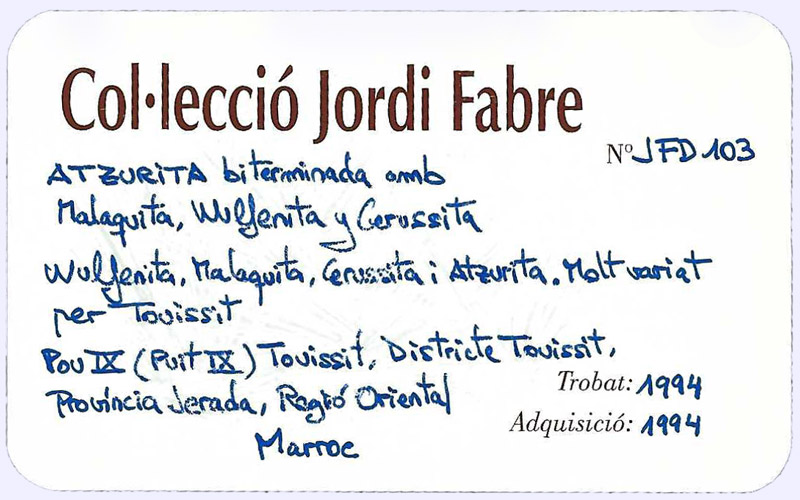 Col·lecció Jordi Fabre
Nº JFD 103
ATZURITA biterminada amb
Malaquita, Wulfenita y Cerussita
Wulfenita, Malaquita, Cerussita i Atzurita. Molt variat
per Touissit
Pou IX (Puit IX) Touissit, Districte Touissit,
Província Jerada, Regió Oriental
Marroc
Trobat: 1994
Adquisició: 1994